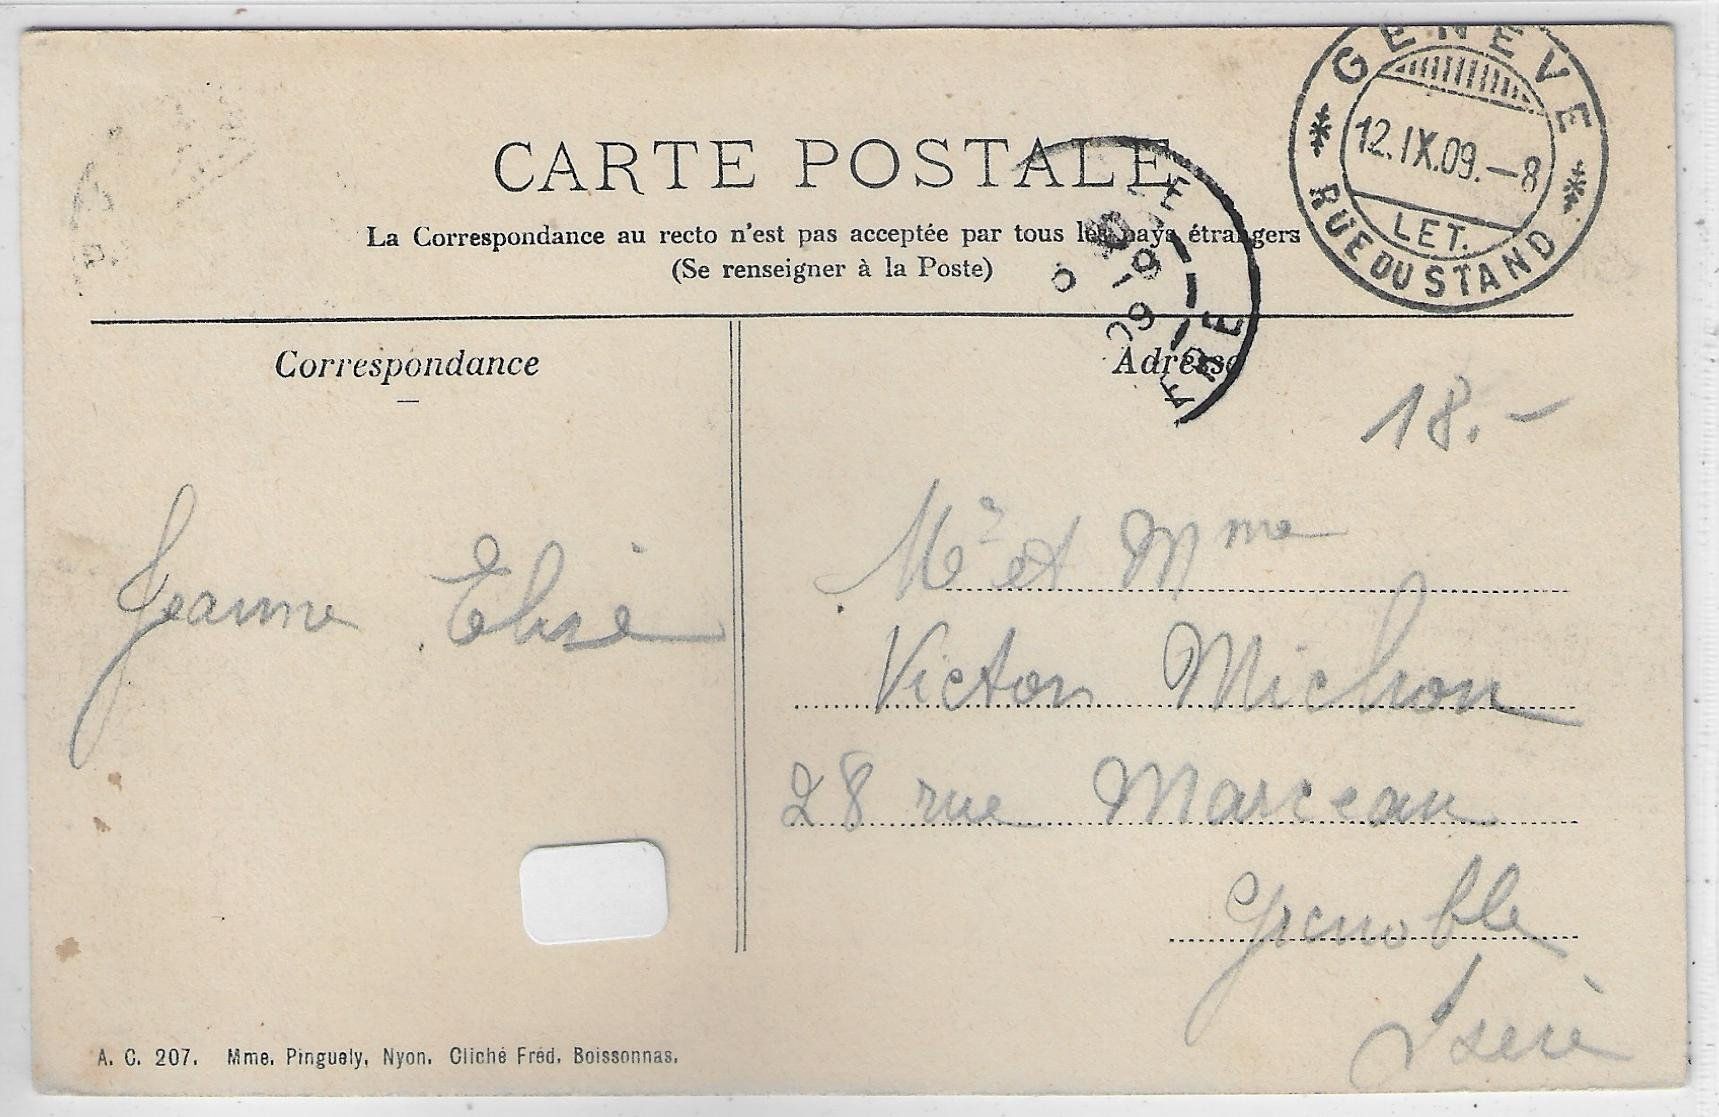 GENÈVE
12.IX.09.—8
LET.
RUE DU STAND
CARTE POSTALE
La Correspondance au recto n'est pas acceptée par tous les pays étrangers
(Se renseigner à la Poste)
Correspondance
Adresse
18.-
Jeanne Elise
Mr et Mme
Victor Michon
28 rue Marceau
Grenoble
Isère
A. C. 207. Mme. Pinguely, Nyon. Cliché Fréd. Boissonnas.